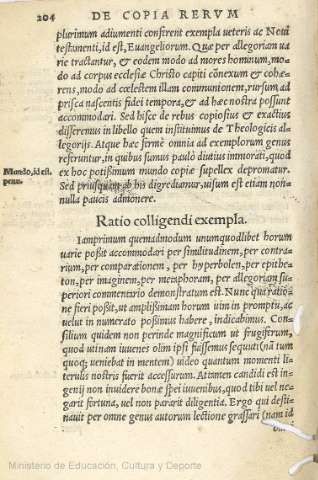 204 DE COPIA RERVM
plurimum adiumenti conferent exempla ueteris ac Noui
testamenti, id est, Euangeliorum. Quæ per allegoriam ua
rie tractantur, & eodem modo ad mores hominum, mo=
do ad corpus ecclesiæ Christo capiti cōnexum & cohæ=
rens, modo ad cœlestem illam communionem, rursum, ad
prisca nascentis fidei tempora, & ad hæc nostra possunt
accommodari. Sed hisce de rebus copiosius & exactius
disseremus in libello quem instituimus de Theologicis al=
legorijs. Atque hæc fermè omnia ad exemplorum genus
referuntur, in quibus sumus paulò diutius immorati, quod
Mundo, id est.
ex hoc potissimum mundo copiæ supellex depromatur.
penu.
Sed priusquam ab his digrediamur, uisum est etiam non=
nulla paucis admonere.
Ratio colligendi exempla.
Iamprimum quemadmodum unumquodlibet horum
uarie possit accommodari per similitudinem, per contra=
rium, per comparationem, per hyperbolen, per epithe=
ton, per imaginem, per metaphoram, per allegoriam su=
periori commentario demonstratum est. Nunc qui ratio=
ne fieri possit, ut amplissimam horum uim in promptu, ac
uelut in numerato possimus habere, indicabimus. Con=
silium quidem non perinde magnificum ut frugiferum,
quod utinam iuuenes olim ipsi fuissemus sequuti (nā tum
quoq; ueniebat in mentem) uideo quantum momenti li=
terulis nostris fuerit accessurum. Attamen candidi est in=
genij non inuidere bonæ spei iuuenibus, quod tibi uel ne=
garit fortuna, uel non pararit diligentia. Ergo qui desti=
nauit per omne genus autorum lectione grassari (nam id
Ministerio de Educación, Cultura y Deporte